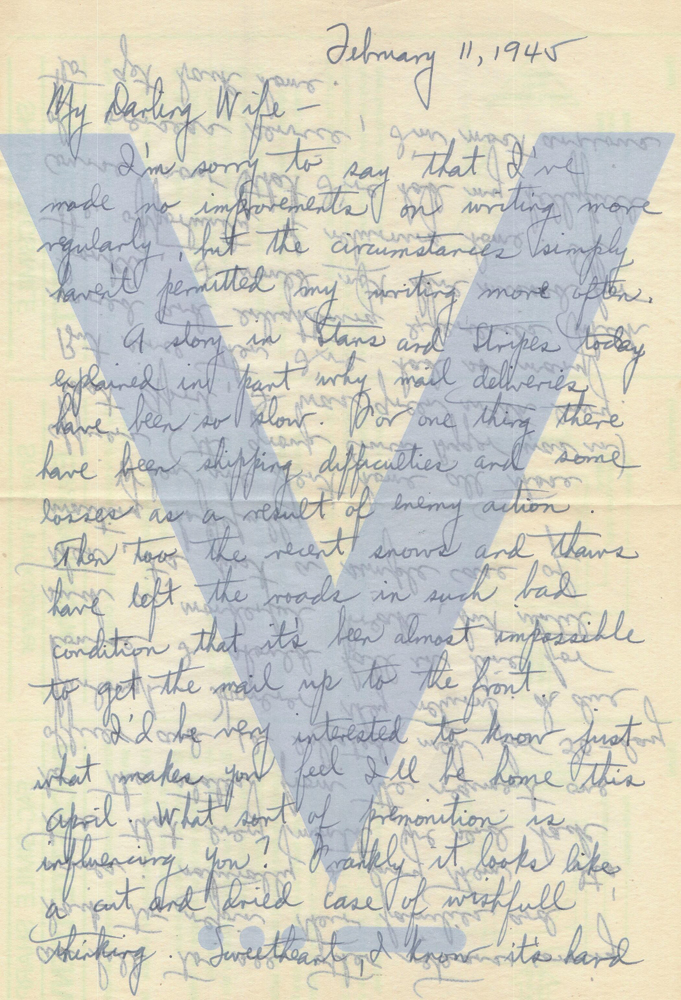 February 11, 1945
My Darling Wife –
I'm sorry to say that I've
made no improvements on writing more
regularly, but the circumstances simply
haven't permitted my writing more often.
A story in Stars and Stripes today
explained in part why mail deliveries
have been so slow. For one thing there
have been shipping difficulties and some
losses as a result of enemy action.
Then too the recent snows and thaws
have left the roads in such bad
condition that it's been almost impossible
to get the mail up to the front.
I'd be very interested to know just
what makes you feel I'll be home this
April. What sort of premonition is
influencing you? Frankly it looks like
a cut and dried case of wishfull
thinking. Sweetheart, I know it's hard